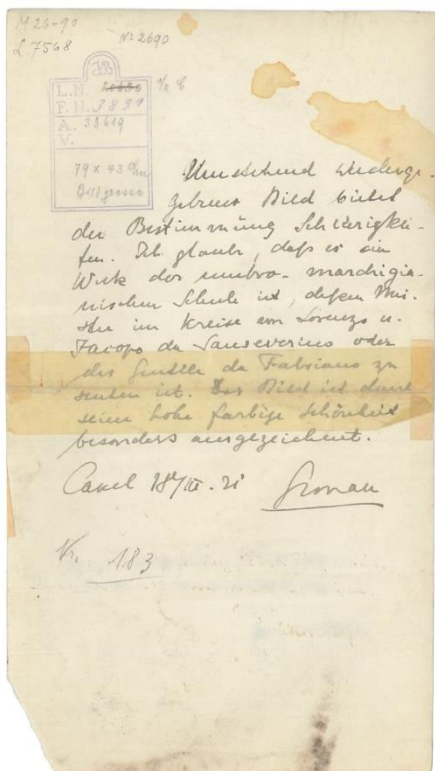 M 26-90
L. 7568
No 2690
L.N.
F.N. 3839
A. 33619
V.
79 x 43 c/m
Umstehend wiederge-
gebenes Bild bietet
der Bestimmung Schwierigkei-
ten. Ich glaube, daß es ein
Werk der umbro-marchigia-
nischen Schule ist, dessen Mei-
ster im Kreise von Lorenzo u.
Jacopo da Sanseverino oder
des Gentile da Fabriano zu
suchen ist. Das Bild ist durch
seine hohe farbige Schönheit
besonders ausgezeichnet.
Cassel 18/III. 21 Gronau
Nr. 183